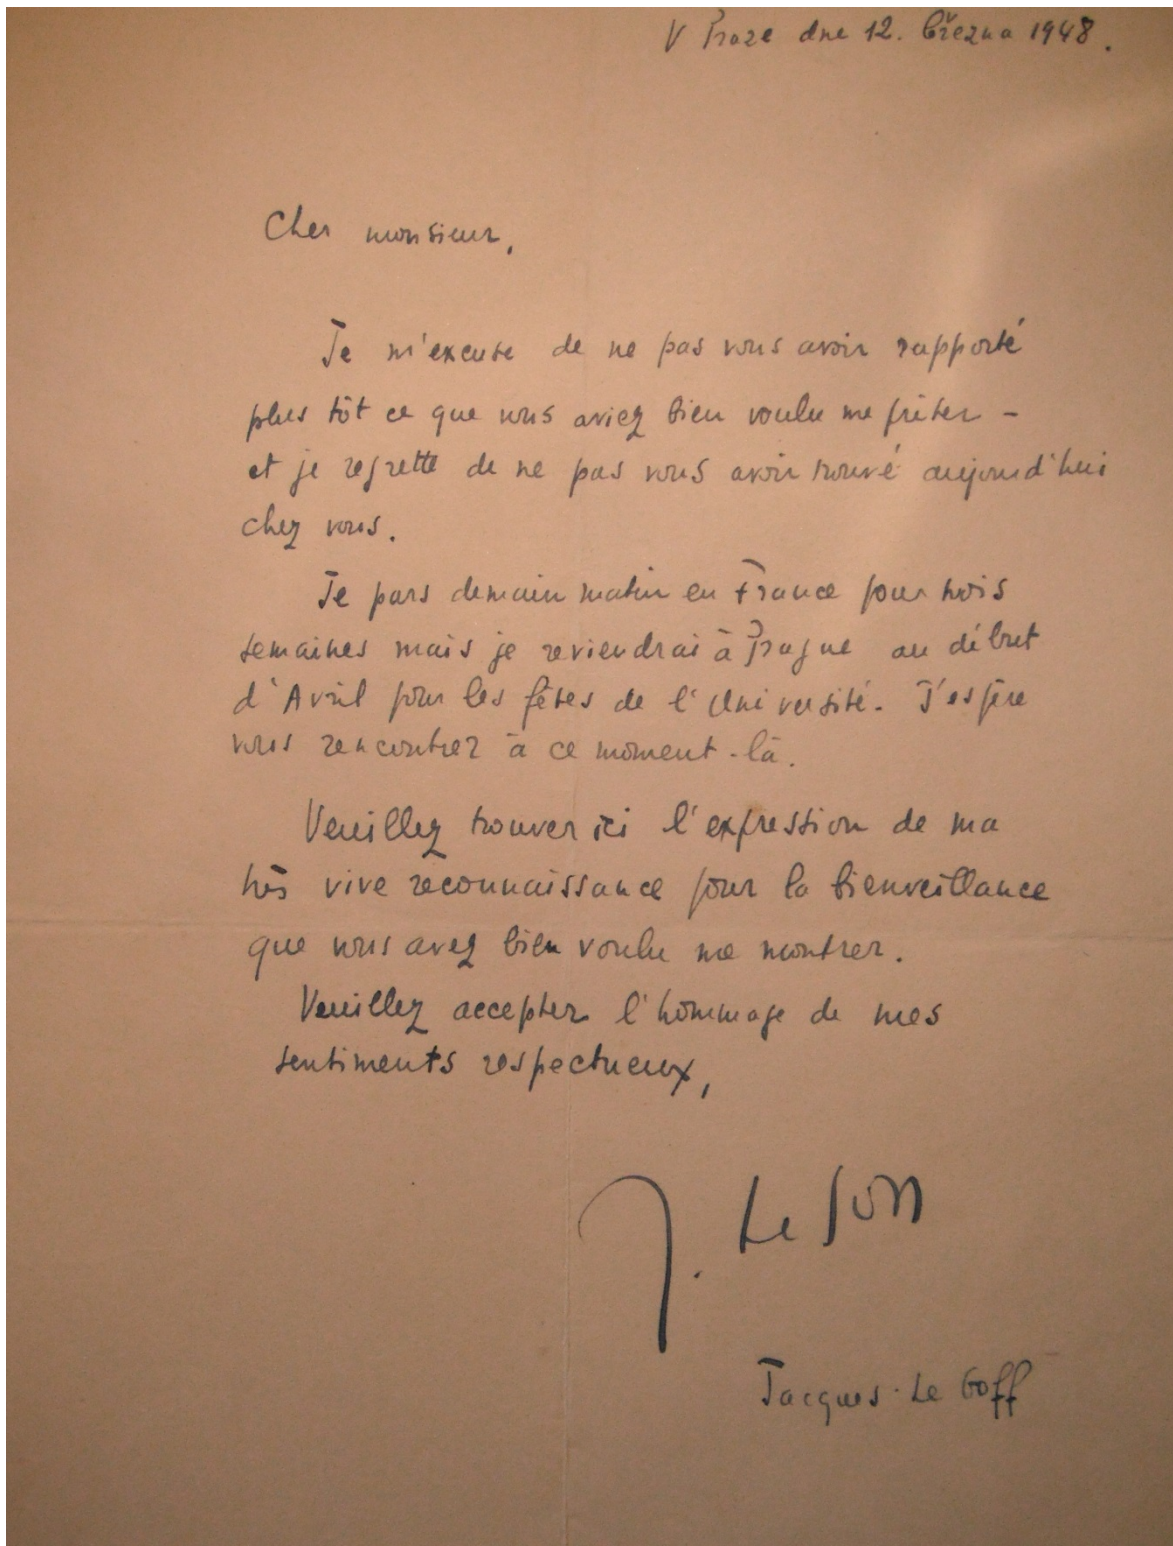 V Praze dne 12. března 1948.
Cher monsieur,
Je m'excuse de ne pas vous avoir rapporté
plus tôt ce que vous aviez bien voulu me prêter –
et je regrette de ne pas vous avoir trouvé aujourd'hui
chez vous.
Je pars demain matin en France pour trois
semaines mais je reviendrai à Prague au début
d'Avril pour les fêtes de l'Université. J'espère
vous rencontrer à ce moment-là.
Veuillez trouver ici l'expression de ma
très vive reconnaissance pour la bienveillance
que vous avez bien voulu me montrer.
Veuillez accepter l'hommage de mes
sentiments respectueux,
J. Le Goff
Jacques Le Goff